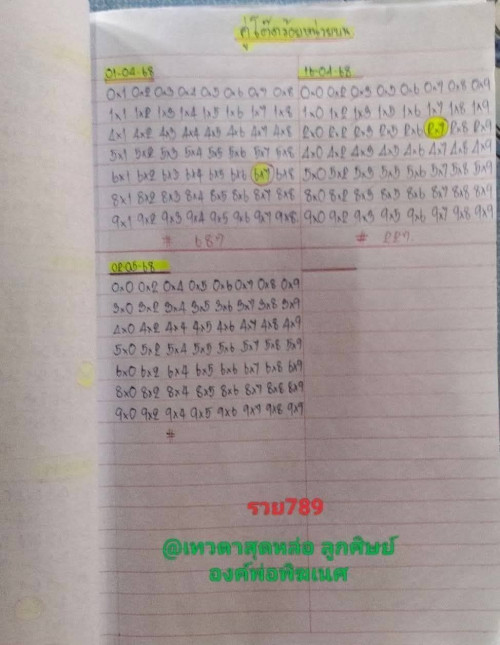 คู่โต๊ดร้อยหน่วยบน
01-04-68
0x1 0x2 0x3 0x4 0x5 0x6 0x7 0x8
1x1 1x2 1x3 1x4 1x5 1x6 1x7 1x8
4x1 4x2 4x3 4x4 4x5 4x6 4x7 4x8
5x1 5x2 5x3 5x4 5x5 5x6 5x7 5x8
6x1 6x2 6x3 6x4 6x5 6x6 6x7 6x8
8x1 8x2 8x3 8x4 8x5 8x6 8x7 8x8
9x1 9x2 9x3 9x4 9x5 9x6 9x7 9x8
# 687
16-04-68
0x0 0x2 0x3 0x5 0x6 0x7 0x8 0x9
1x0 1x2 1x3 1x5 1x6 1x7 1x8 1x9
2x0 2x2 2x3 2x5 2x6 2x7 2x8 2x9
4x0 4x2 4x3 4x5 4x6 4x7 4x8 4x9
5x0 5x2 5x3 5x5 5x6 5x7 5x8 5x9
8x0 8x2 8x3 8x5 8x6 8x7 8x8 8x9
9x0 9x2 9x3 9x5 9x6 9x7 9x8 9x9
# 227
02-05-68
0x0 0x2 0x4 0x5 0x6 0x7 0x8 0x9
3x0 3x2 3x4 3x5 3x6 3x7 3x8 3x9
4x0 4x2 4x4 4x5 4x6 4x7 4x8 4x9
5x0 5x2 5x4 5x5 5x6 5x7 5x8 5x9
6x0 6x2 6x4 6x5 6x6 6x7 6x8 6x9
8x0 8x2 8x4 8x5 8x6 8x7 8x8 8x9
9x0 9x2 9x4 9x5 9x6 9x7 9x8 9x9
#
รวย789
@เทวดาสุดหล่อ ลูกศิษย์
องค์พ่อพิฆเนศ